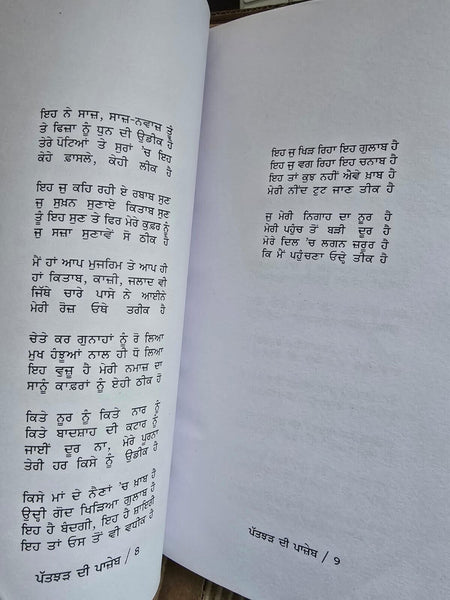 ਇਹ ਨੇ ਸਾਜ਼, ਸਾਜ਼-ਨਵਾਜ਼ ਤੂੰ
ਤੇ ਫਿਜ਼ਾ ਨੂੰ ਧੁਨ ਦੀ ਉਡੀਕ ਹੈ
ਤੇਰੇ ਪੋਟਿਆਂ ਤੇ ਸੁਰਾਂ 'ਚ ਇਹ
ਕੇਹੇ ਫ਼ਾਸਲੇ, ਕੇਹੀ ਲੀਕ ਹੈ
ਇਹ ਜੁ ਕਹਿ ਰਹੀ ਏ ਰਬਾਬ ਸੁਣ
ਜੁ ਸੁਖ਼ਨ ਸੁਣਾਏ ਕਿਤਾਬ ਸੁਣ
ਤੂੰ ਇਹ ਸੁਣ ਤੇ ਫਿਰ ਮੇਰੇ ਕੁਫ਼ਰ ਨੂੰ
ਜੁ ਸਜ਼ਾ ਸੁਣਾਵੇਂ ਸੋ ਠੀਕ ਹੈ
ਮੈਂ ਹਾਂ ਆਪ ਮੁਜਰਿਮ ਤੇ ਆਪ ਹੀ
ਹਾਂ ਕਿਤਾਬ, ਕਾਜ਼ੀ, ਜਲਾਦ ਵੀ
ਜਿੱਥੇ ਚਾਰੇ ਪਾਸੇ ਨੇ ਆਈਨੇ
ਮੇਰੀ ਰੋਜ਼ ਓਥੇ ਤਰੀਕ ਹੈ
ਚੇਤੇ ਕਰ ਗੁਨਾਹਾਂ ਨੂੰ ਰੋ ਲਿਆ
ਮੁਖ ਹੰਝੂਆਂ ਨਾਲ ਹੀ ਧੋ ਲਿਆ
ਇਹ ਵੁਜ਼ੂ ਹੈ ਮੇਰੀ ਨਮਾਜ਼ ਦਾ
ਸਾਨੂੰ ਕਾਫ਼ਰਾਂ ਨੂੰ ਏਹੀ ਠੀਕ ਹੈ
ਕਿਤੇ ਨੂਰ ਨੂੰ ਕਿਤੇ ਨਾਰ ਨੂੰ
ਕਿਤੇ ਬਾਦਸ਼ਾਹ ਦੀ ਕਟਾਰ ਨੂੰ
ਜਾਈਂ ਦੂਰ ਨਾ, ਮੇਰੇ ਪੂਰਨਾ
ਤੇਰੀ ਹਰ ਕਿਸੇ ਨੂੰ ਉਡੀਕ ਹੈ
ਕਿਸੇ ਮਾਂ ਦੇ ਨੈਣਾਂ 'ਚ ਖ਼ਾਬ ਹੈ
ਉਦ੍ਹੀ ਗੋਦ ਖਿੜਿਆ ਗੁਲਾਬ ਹੈ
ਇਹ ਹੈ ਬੰਦਗੀ, ਇਹ ਹੈ ਸ਼ਾਇਰੀ
ਇਹ ਤਾਂ ਓਸ ਤੋਂ ਵੀ ਵਧੀਕ ਹੈ
ਪੱਤਝੜ ਦੀ ਪਾਜ਼ੇਬ / 8
ਇਹ ਜੁ ਖਿੜ ਰਿਹਾ ਇਹ ਗੁਲਾਬ ਹੈ
ਇਹ ਜੁ ਵਗ ਰਿਹਾ ਇਹ ਚਨਾਬ ਹੈ
ਇਹ ਤਾਂ ਕੁਝ ਨਹੀਂ ਐਵੇਂ ਖ਼ਾਬ ਹੈ
ਮੇਰੀ ਨੀਂਦ ਟੁਟ ਜਾਣ ਤੀਕ ਹੈ
ਜੁ ਮੇਰੀ ਨਿਗਾਹ ਦਾ ਨੂਰ ਹੈ
ਮੇਰੀ ਪਹੁੰਚ ਤੋਂ ਬੜੀ ਦੂਰ ਹੈ
ਮੇਰੇ ਦਿਲ 'ਚ ਲਗਨ ਜ਼ਰੂਰ ਹੈ
ਕਿ ਮੈਂ ਪਹੁੰਚਣਾ ਓਦ੍ਹੇ ਤੀਕ ਹੈ
ਪੱਤਝੜ ਦੀ ਪਾਜ਼ੇਬ / ੯